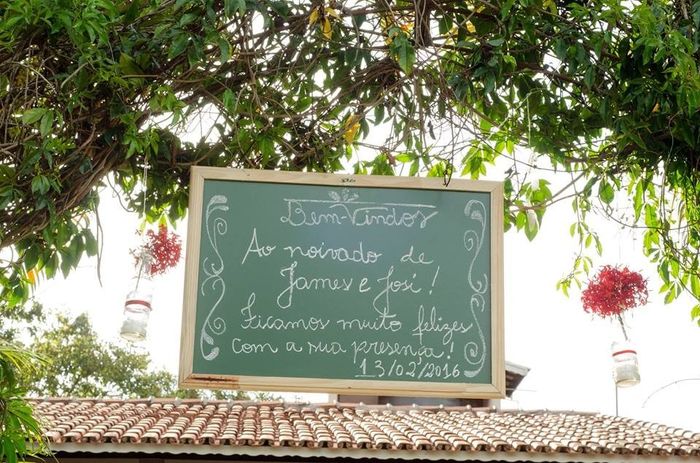 Bem-Vindos
Ao noivado de
James e Josi!
Ficamos muito felizes
com a sua presença!
13/02/2016